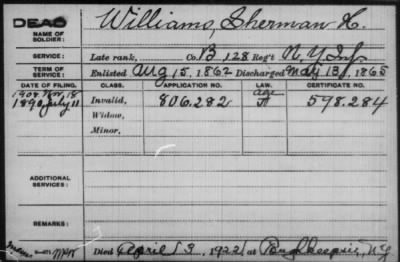 DEAD Williams, Sherman H.
NAME OF SOLDIER:
SERVICE: Late rank, Co. B 128 Reg't N.Y. Inf.
TERM OF SERVICE: Enlisted Aug 15, 1862 Discharged May 13, 1865
DATE OF FILING. CLASS. APPLICATION NO. LAW. CERTIFICATE NO.
1908 Nov 18 Age
1890 July 11 Invalid, 806.282 A 598.284
Widow,
Minor,
ADDITIONAL SERVICES:
REMARKS:
Died April 13, 1922 at Poughkeepsie, N.Y.